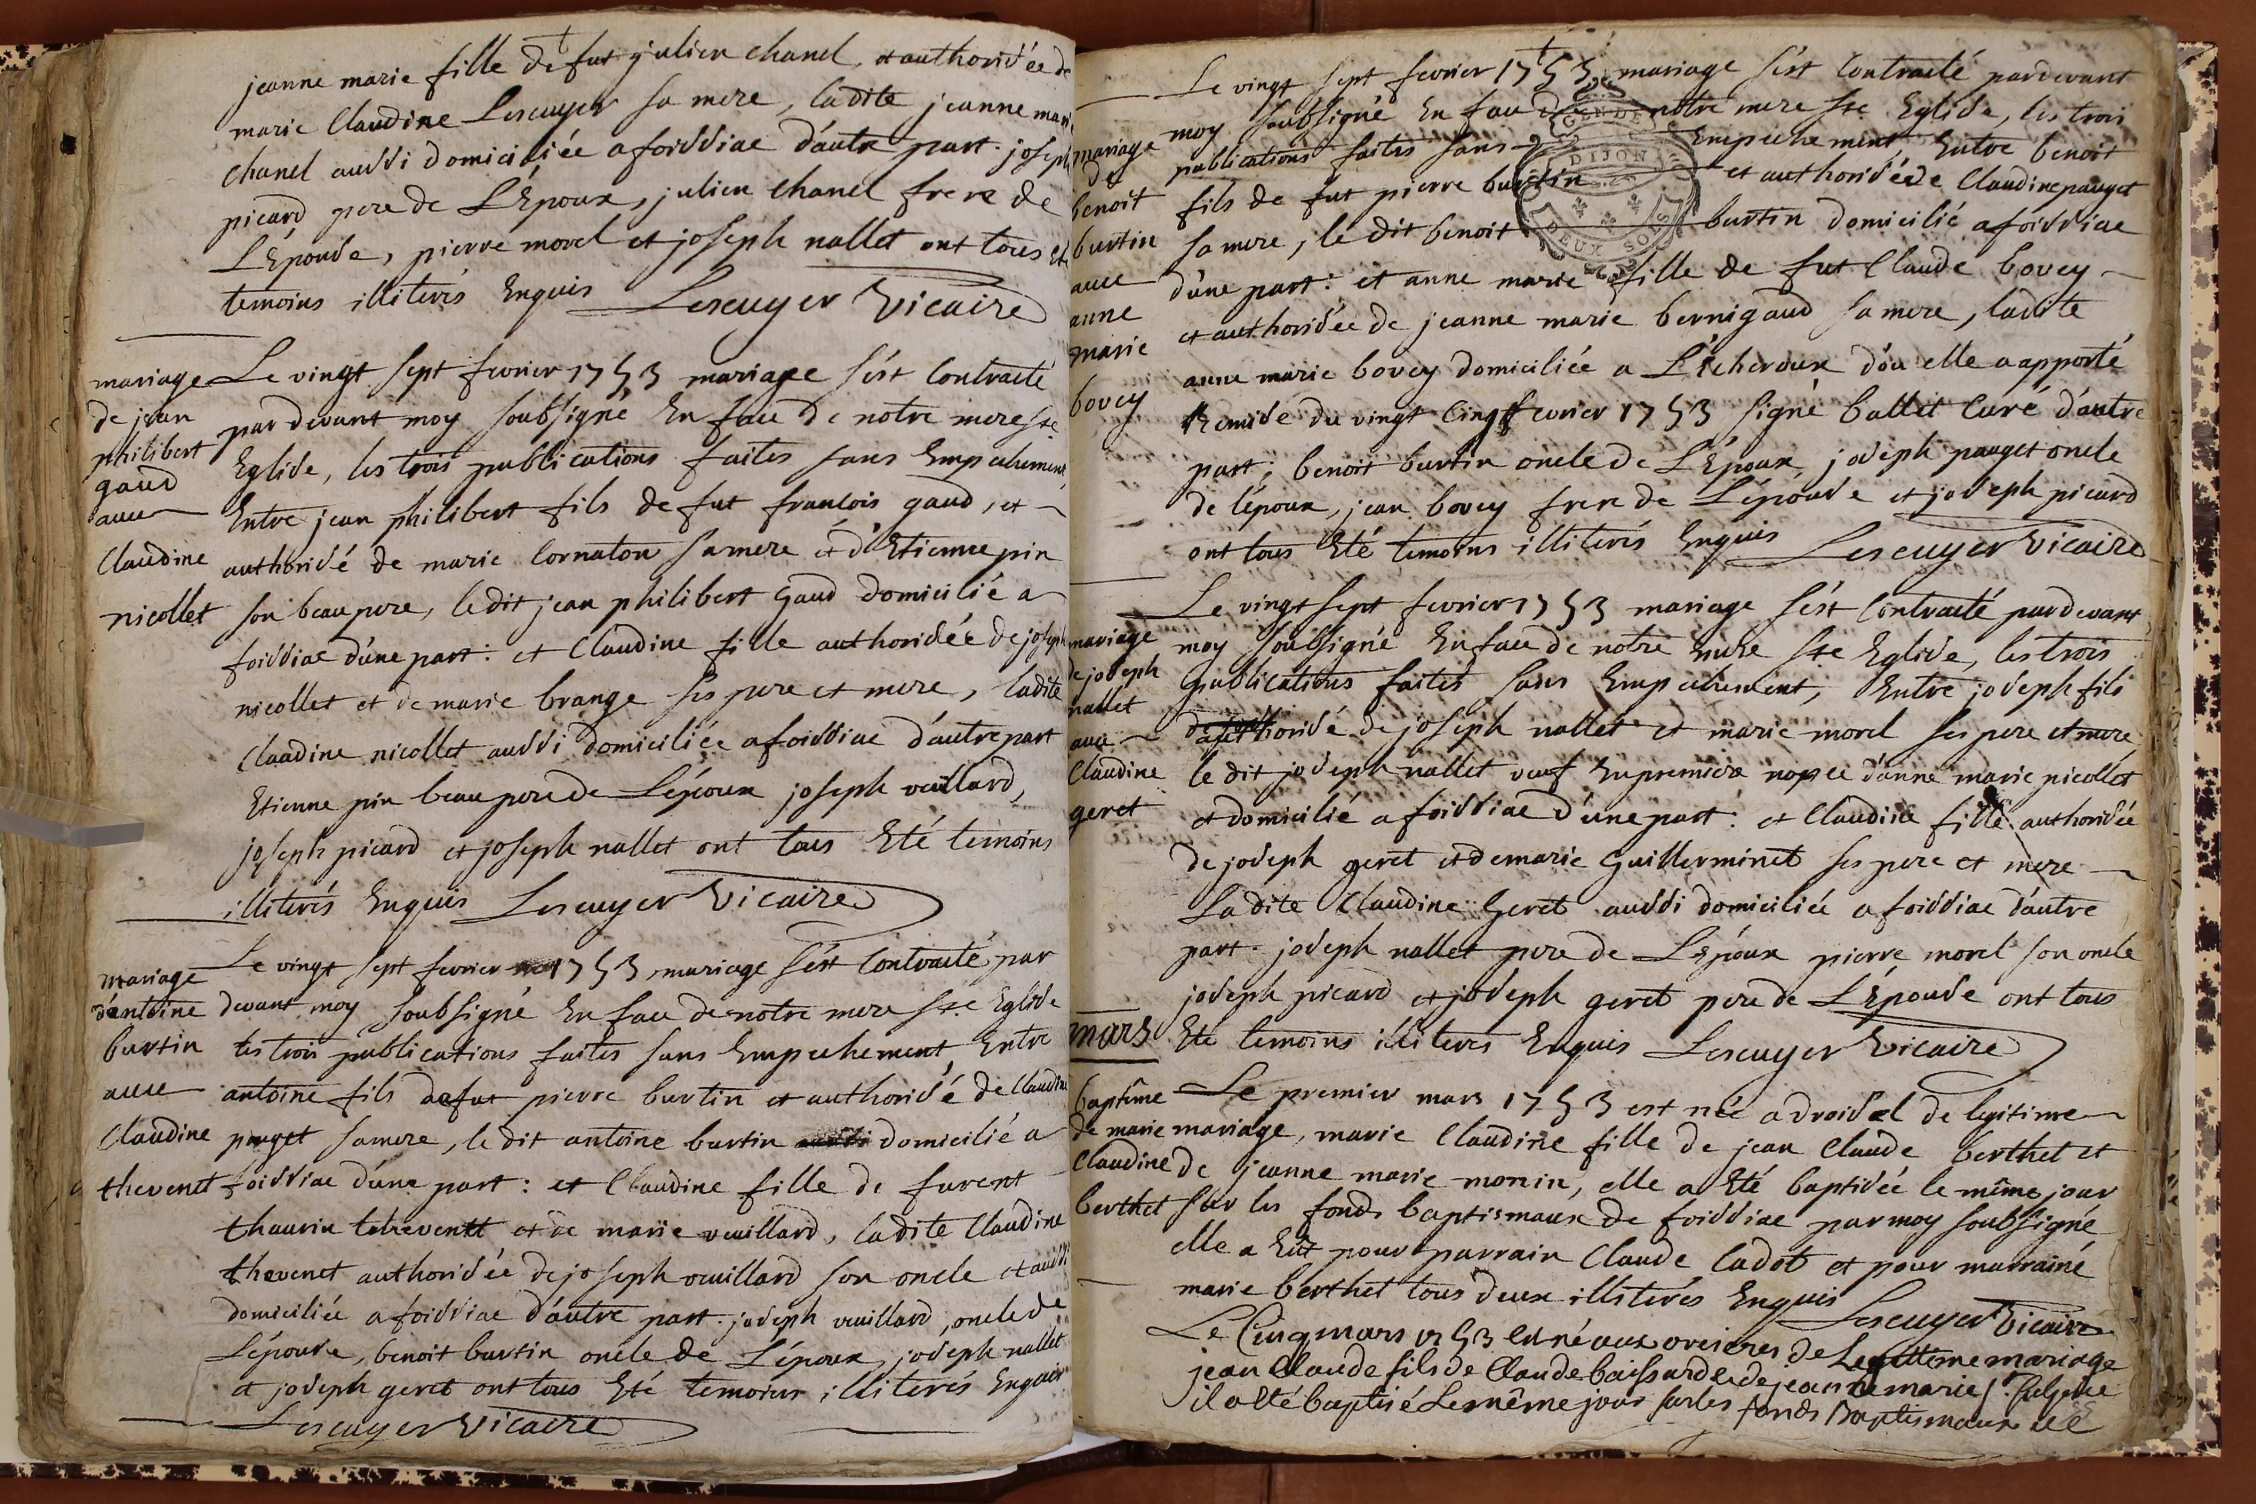 jeanne marie fille de fut julien chanel, et authorisée de
marie Claudine Lescuyer sa mere, ladite jeanne marie
chanel aussi domiciliée a foissiac d'autre part. joseph
picard pere de L'Epoux, julien chanel frere de
L'Epouse, pierre morel et joseph nallet ont tous Eté
temoins illiterés Enquis Lescuyer Vicaire
mariage
de jean
philibert
gaud
avec
Claudine
nicollet
Le vingt sept fevrier 1753 mariage s'est Contracté
par devant moy soubsigné En face de notre mere ste
Eglise, les trois publications faites sans Empechement,
Entre jean philibert fils de fut francois gaud, et
authorisé de marie Cornaton sa mere et d'Etienne pin
son beau pere, le dit jean philibert Gaud domicilié a
foissiac d'une part: et Claudine fille authorisée de joseph
nicollet et de marie brange ses pere et mere, ladite
Claudine nicollet aussi domiciliée a foissiac d'autre part
Etienne pin beau pere de L'époux joseph veuillard,
joseph picard et joseph nallet ont tous Eté temoins
illiterés Enquis Lescuyer Vicaire
mariage
d'antoine
burtin
avec
Claudine
thevenet
Le vingt sept fevrier 1753 mariage s'est Contracté par
devant moy soubsigné En face de notre mere ste Eglise
les trois publications faites sans Empechement, Entre
antoine fils de fut pierre burtin et authorisé de Claudine
pauget sa mere, le dit antoine burtin domicilié a
foissiac d'une part: et Claudine fille de furent
thaurin thevenet et de marie veuillard, ladite Claudine
thevenet authorisée de joseph veuillard son oncle et aussi
domiciliée a foissiac d'autre part. joseph veuillard, oncle de
L'épouse, benoit burtin oncle de L'époux, joseph nallet
et joseph geret ont tous Eté temoins illiterés Enquis
Lescuyer Vicaire
mariage
de
benoit
burtin
avec
anne
marie
bovey
Le vingt sept fevrier 1753 mariage s'est Contracté par devant
moy soubsigné En face de notre mere ste Eglise, les trois
publications faites sans Empechement Entre benoit
fils de fut pierre burtin et authorisé de Claudine pauget
sa mere, le dit benoit burtin domicilié a foissiac
d'une part: et anne marie fille de fut Claude bovey
et authorisée de jeanne marie bernigaud sa mere, ladite
anne marie bovey domiciliée a L'écheroux d'ou elle a apporté
Remise du vingt Cinq fevrier 1753 signé ballet Curé d'autre
part; benoit burtin oncle de L'Epoux, joseph pauget oncle
de l'époux, jean bovey frere de L'épouse et joseph picard
ont tous Eté temoins illiterés Enquis Lescuyer Vicaire
GEN DE
DIJON
DEUX SOLS
mariage
de joseph
nallet
avec
Claudine
geret
Le vingt sept fevrier 1753 mariage s'est Contracté par devant
moy soubsigné En face de notre mere ste Eglise, les trois
publications faites sans Empechement, Entre joseph fils
authorisé de joseph nallet et marie morel ses pere et mere
le dit joseph nallet veuf En premiere nopce d'anne marie nicollet
et domicilié a foissiac d'une part: et Claudine fille authorisée
de joseph geret et de marie Guillerminet ses pere et mere
Ladite Claudine Geret aussi domiciliée a foissiac d'autre
part. joseph nallet pere de L'époux pierre morel son oncle
joseph picard et joseph geret pere de L'Epouse ont tous
Eté temoins illiterés Enquis Lescuyer Vicaire
mars
baptême
de marie
Claudine
berthet
Le premier mars 1753 est née a droisel de legitime
mariage, marie Claudine fille de jean Claude berthet et
de jeanne marie monin, elle a Eté baptisée le même jour
sur les fonds baptismaux de foissiac par moy soubsigné
elle a Eût pour parrain Claude Cadot et pour marraine
marie berthet tous deux illiterés Enquis
Lescuyer Vicaire
Le Cinq mars 1753 est né aux oveieres de Legitteme mariage
jean Claude fils de Claude baissard et de jeanne marie
il a été baptisé Le même jour sur les fonds Baptismaux de